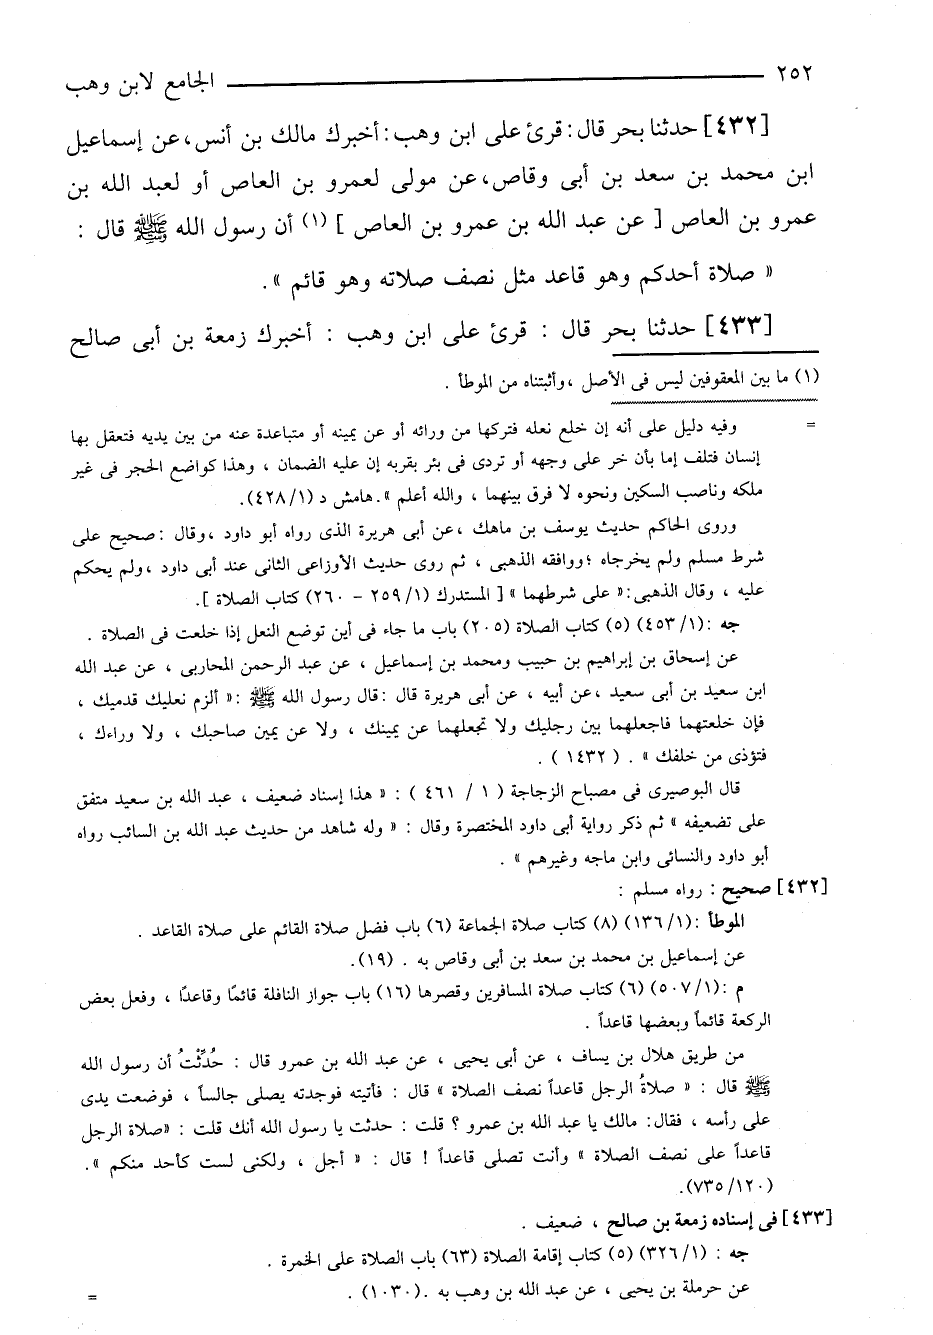 ٢٥٢ الجامع لابن وهب
[٤٣٢] حدثنا بحر قال: قرئ على ابن وهب: أخبرك مالك بن أنس، عن إسماعيل
ابن محمد بن سعد بن أبى وقاص، عن مولى لعمرو بن العاص أو لعبد الله بن
عمرو بن العاص [ عن عبد الله بن عمرو بن العاص ] (١) أن رسول الله ﷺ قال :
« صلاة أحدكم وهو قاعد مثل نصف صلاته وهو قائم ».
[٤٣٣] حدثنا بحر قال : قرئ على ابن وهب : أخبرك زمعة بن أبى صالح
(١) ما بين المعقوفين ليس فى الأصل ، وأثبتناه من الموطأ .
= وفيه دليل على أنه إن خلع نعله فتركها من ورائه أو عن يمينه أو متباعدة عنه من بين يديه فتعقل بها
إنسان فتلف إما بأن خر على وجهه أو تردى فى بئر بقربه إن عليه الضمان ، وهذا كواضع الحجر فى غير
ملكه وناصب السكين ونحوه لا فرق بينهما ، والله أعلم ». هامش د (١/ ٤٢٨).
وروى الحاكم حديث يوسف بن ماهك ، عن أبى هريرة الذى رواه أبو داود ، وقال : صحيح على
شرط مسلم ولم يخرجاه ؛ ووافقه الذهبى ، ثم روى حديث الأوزاعى الثانى عند أبى داود ، ولم يحكم
عليه ، وقال الذهبى: « على شرطهما » [ المستدرك (١/ ٢٥٩ - ٢٦٠) كتاب الصلاة ].
جه : (١/ ٤٥٣) (٥) كتاب الصلاة (٢٠٥) باب ما جاء فى أين توضع النعل إذا خلعت فى الصلاة .
عن إسحاق بن إبراهيم بن حبيب ومحمد بن إسماعيل ، عن عبد الرحمن المحاربى ، عن عبد الله
ابن سعيد بن أبى سعيد ، عن أبيه ، عن أبى هريرة قال : قال رسول الله ﷺ : « ألزم نعليك قدميك ،
فإن خلعتهما فاجعلهما بين رجليك ولا تجعلهما عن يمينك ، ولا عن يمين صاحبك ، ولا وراءك ،
فتؤذى من خلفك » . ( ١٤٣٢ ) .
قال البوصيرى فى مصباح الزجاجة ( ١ / ٤٦١ ) : « هذا إسناد ضعيف ، عبد الله بن سعيد متفق
على تضعيفه » ثم ذكر رواية أبى داود المختصرة وقال : « وله شاهد من حديث عبد الله بن السائب رواه
أبو داود والنسائى وابن ماجه وغيرهم » .
[٤٣٢] صحيح : رواه مسلم :
الموطأ : (١/ ١٣٦) (٨) كتاب صلاة الجماعة (٦) باب فضل صلاة القائم على صلاة القاعد .
عن إسماعيل بن محمد بن سعد بن أبى وقاص به . (١٩).
م : (١/ ٥٠٧) (٦) كتاب صلاة المسافرين وقصرها (١٦) باب جواز النافلة قائمًا وقاعدًا ، وفعل بعض
الركعة قائماً وبعضها قاعداً .
من طريق هلال بن يساف ، عن أبى يحيى ، عن عبد الله بن عمرو قال : حُدِّثْتُ أن رسول الله
ﷺ قال : « صلاةُ الرجل قاعداً نصف الصلاة » قال : فأتيته فوجدته يصلى جالساً ، فوضعت يدى
على رأسه ، فقال: مالك يا عبد الله بن عمرو ؟ قلت : حدثت يا رسول الله أنك قلت : «صلاة الرجل
قاعداً على نصف الصلاة » وأنت تصلى قاعداً ! قال : « أجل ، ولكنى لست كأحد منكم ».
(١٢٠/ ٧٣٥).
[٤٣٣] فى إسناده زمعة بن صالح ، ضعيف .
جه : (١/ ٣٢٦) (٥) كتاب إقامة الصلاة (٦٣) باب الصلاة على الخمرة .
عن حرملة بن يحيى ، عن عبد الله بن وهب به . (١٠٣٠) . =